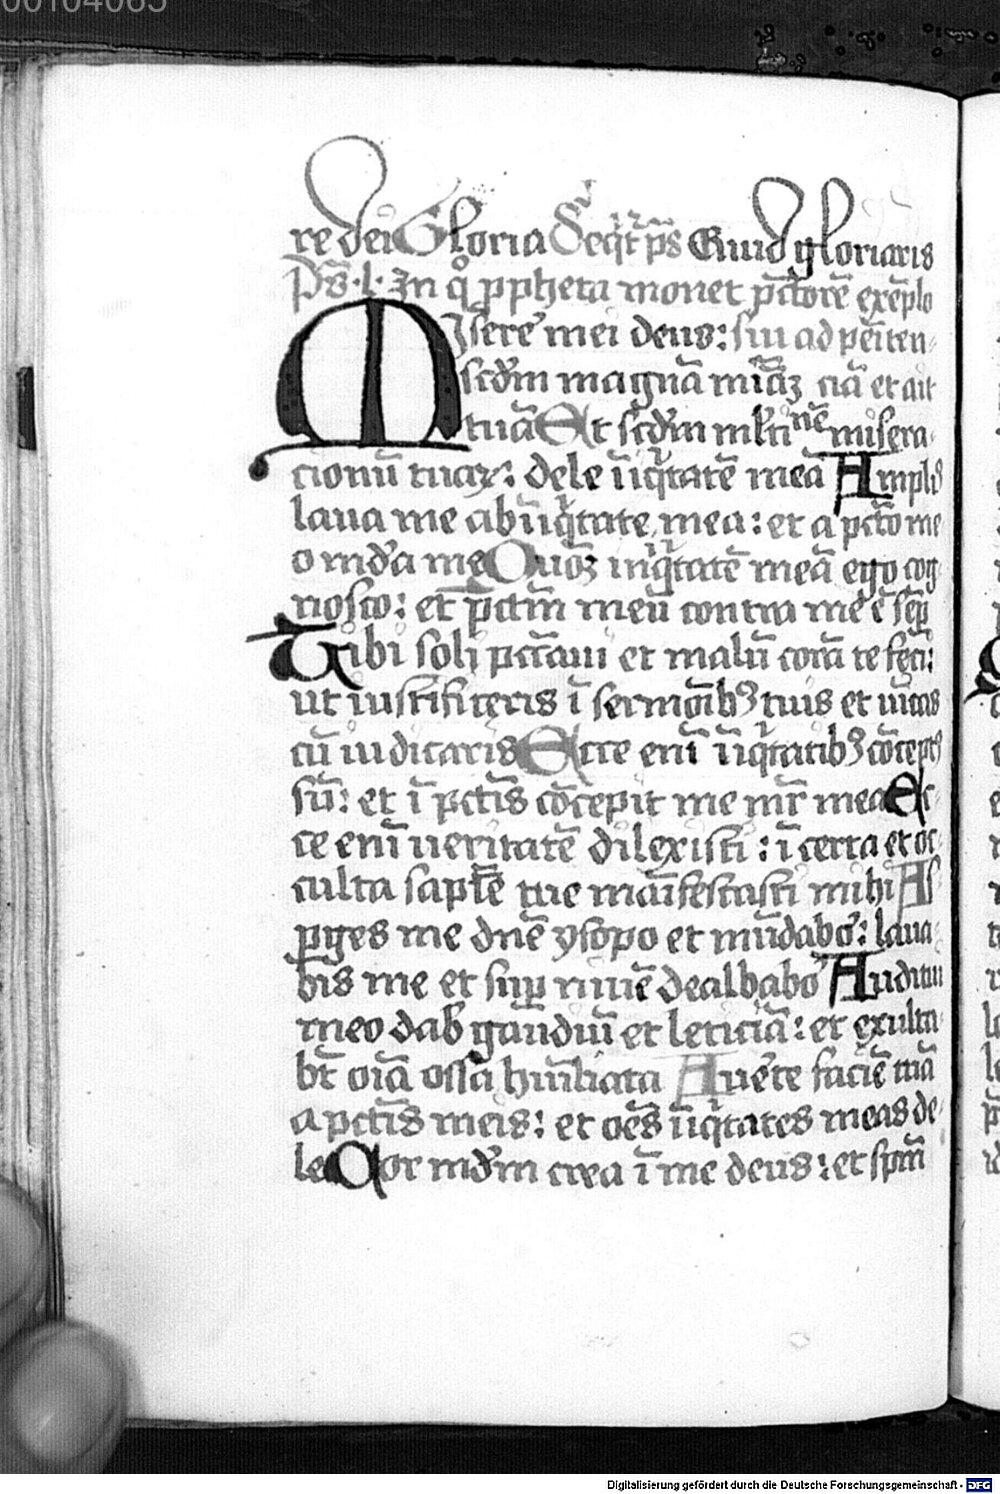 00104065
re dei Gloria Seqͥt̉ ps̄ Quid gloriaris
Ps̄·l· In qͦ ppheta monet pc̄torē exēplo
Misere᷑ mei deus: suī ad pēiten-
scd̄m magnā miāꝫ ciā et ait
tuā Et scd̄m ml̄titinē misera-
cionū tuaꝝ: dele īiqͥtatē meā Ampliꝰ
laua me ab īiqͥtate mea: et a pctō me
o mūda me Quoꝫ iniqͥtatē meā ego cog
nosco: et pctm̄ meū contra me ē semꝑ
Tibi soli pcc̄aui et malū corā te feci:
ut iustificeris ī sermōibꝫ tuis et uīcas
cū iudicaris Ecce eni ī īiqͥtatibꝫ cōceptꝰ
sū: et ī pctīs cōcepit me mr̄ mea Ec-
ce enī ueritatē dilexisti: īcerta et oc-
culta sapīe tue māifestasti mihi As
ꝑges me dnē ysopo et mūdabor᷑: laua-
bis me et suꝑ niuē dealbabor᷑ Auditui
meo dab gaudiū et leticiā: et exulta-
bt̄ oīa ossa hūiliata Auerte faciē tuā
a pctīs meis: et oēs īiqͥtates meas de-
le Cor mūdm̄ crea ī me deus: et spm̄
Digitalisierung gefördert durch die Deutsche Forschungsgemeinschaft - DFG